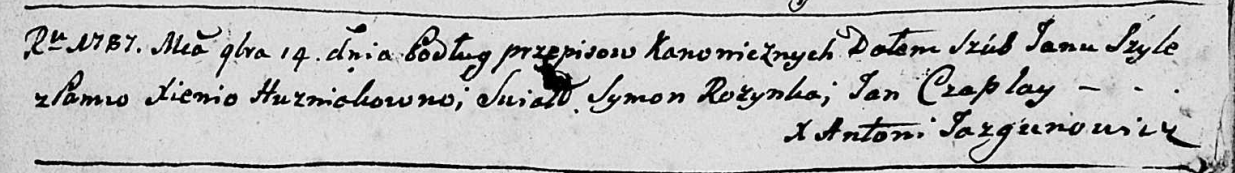 Ru 1787. Mca 9bra 14. dnia Podług przepisow Kanonicznych Dałem Szlub Janu Szyle
z Panno Xienio Huzniakowno; Swiad. Symon Rozynka; Jan Czaplay – . .
X Antoni Jazgunowicz